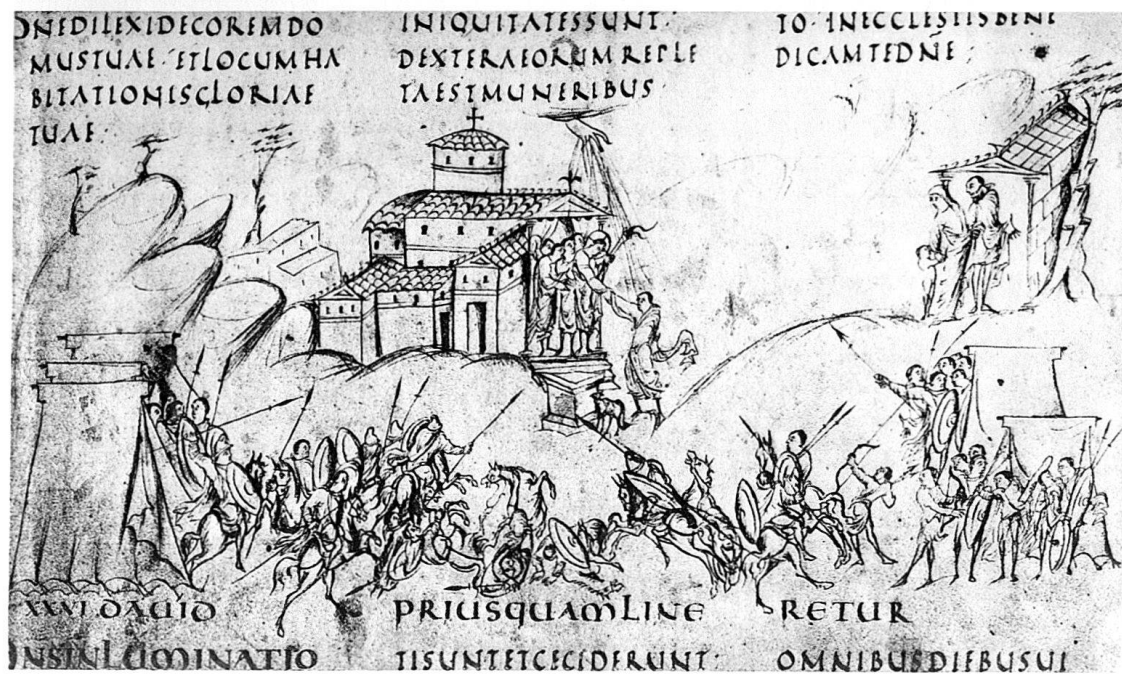 DNEDILEXIDECOREMDO
MUSTUAE·ETLOCUMHA
BITATIONISGLORIAE
TUAE·
INIQUITATESSUNT·
DEXTERAEORUMREPLE
TAESTMUNERIBUS·
TO·INECCLESIISBENE
DICAMTEDN̄E·
XXVI DAUID PRIUSQUAM LINE RETUR
DNSINLUMINATIO
TISUNTETCECIDERUNT·
OMNIBUSDIEBUSUI